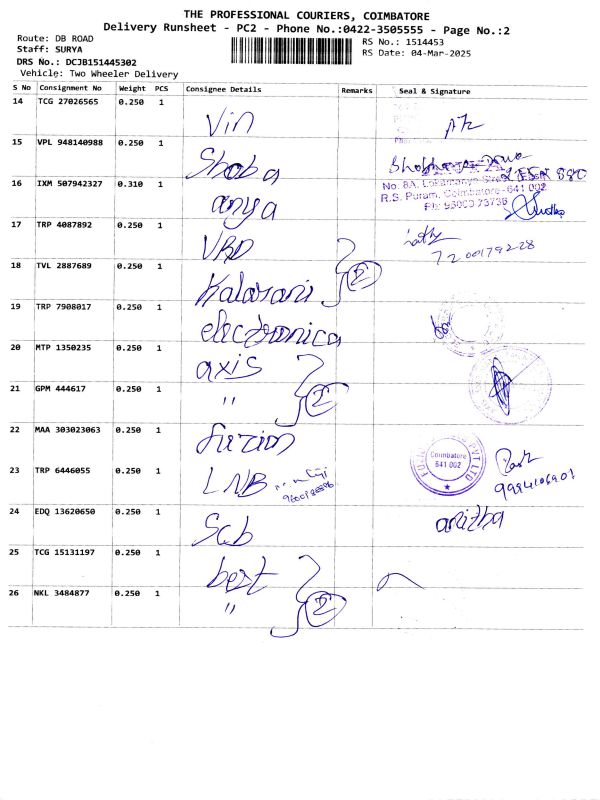 THE PROFESSIONAL COURIERS, COIMBATORE
Delivery Runsheet - PC2 - Phone No.:0422-3505555 - Page No.:2
Route: DB ROAD
Staff: SURYA
DRS No.: DCJB151445302
Vehicle: Two Wheeler Delivery
RS No.: 1514453
RS Date: 04-Mar-2025
S No Consignment No Weight PCS Consignee Details Remarks Seal & Signature
14 TCG 27026565 0.250 1 Vin
15 VPL 948140988 0.250 1 Shoba
16 IXM 507942327 0.310 1 anya
No. 8A, Lokamanya Street
R.S. Puram, Coimbatore-641 002
Ph: 96003 73736
17 TRP 4087892 0.250 1 VBD
7200179228
18 TVL 2887689 0.250 1 Kalarani 2
19 TRP 7908017 0.250 1 electronica
20 MTP 1350235 0.250 1 axis
21 GPM 444617 0.250 1 " 2
22 MAA 303023063 0.250 1 furion
Coimbatore
641 002
PVT LTD
23 TRP 6446055 0.250 1 LNB
9994106901
24 EDQ 13620650 0.250 1 Scb
25 TCG 15131197 0.250 1 best
26 NKL 3484877 0.250 1 " 2